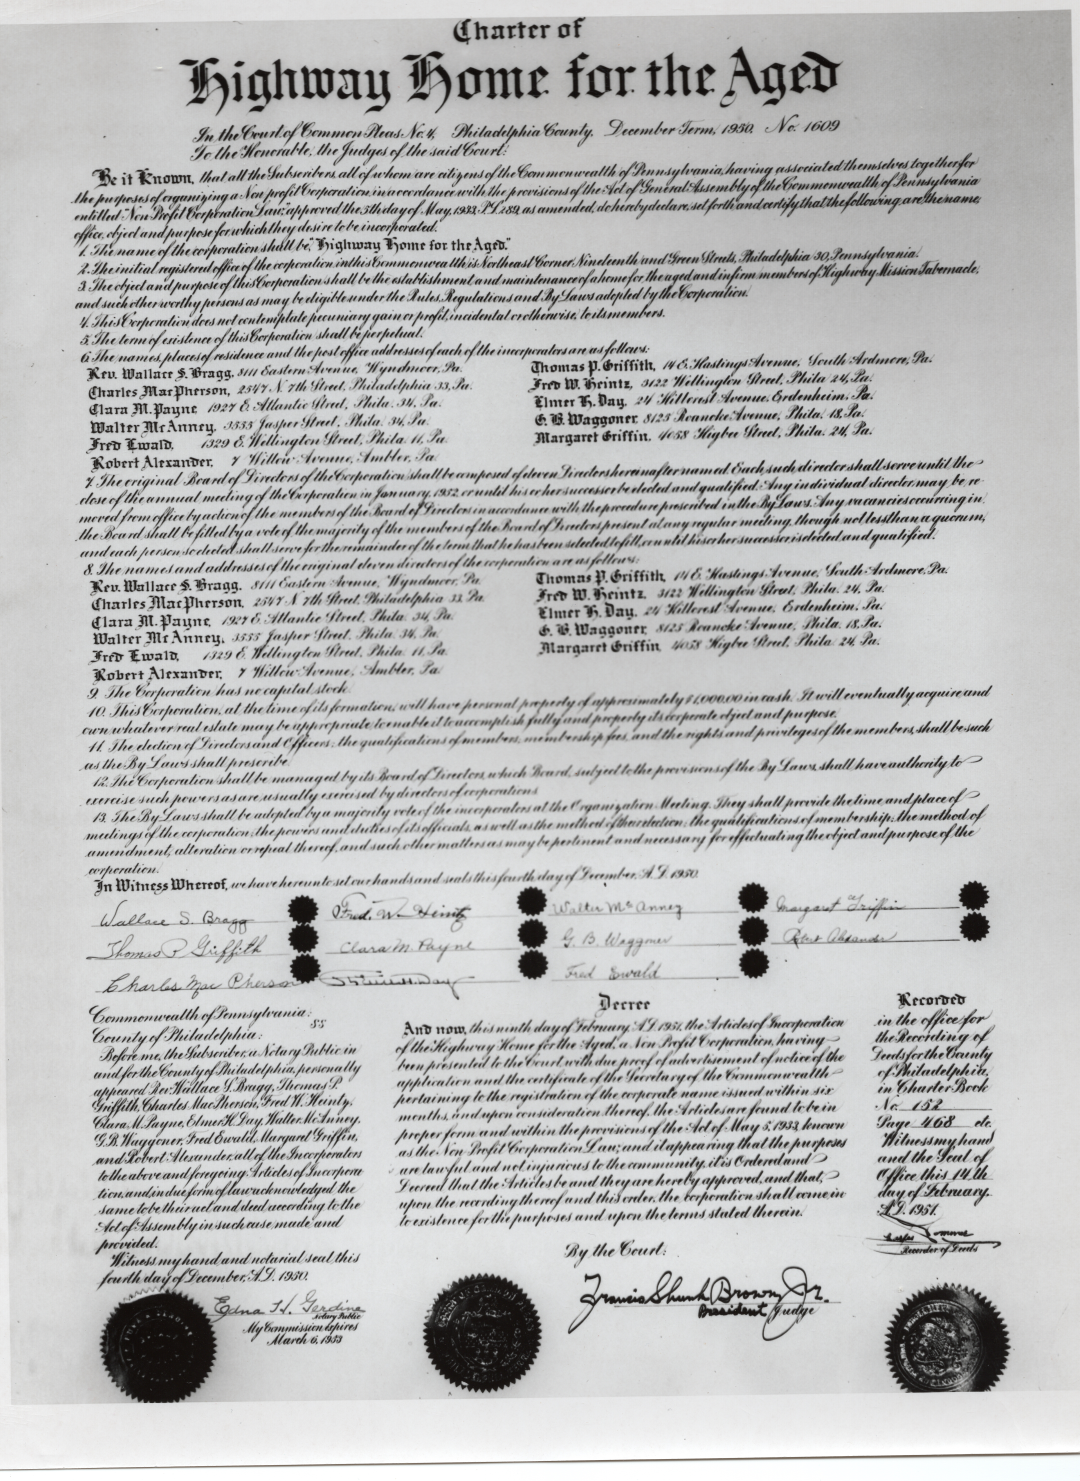 Charter of
Highway Home for the Aged
In the Court of Common Pleas No. 4, Philadelphia County, December Term, 1950. No. 1609
To the Honorable, the Judges of the said Court:
Be it Known, that all the Subscribers, all of whom are citizens of the Commonwealth of Pennsylvania, having associated themselves together for
the purposes of organizing a Non profit Corporation in accordance with the provisions of the Act of General Assembly of the Commonwealth of Pennsylvania
entitled "Non Profit Corporation Law," approved the 5th day of May, 1933, P.L. 289, as amended, do hereby declare, set forth and certify that the following are the name,
office, object and purpose for which they desire to be incorporated.
1. The name of the corporation shall be, "Highway Home for the Aged."
2. The initial registered office of the corporation in this Commonwealth is Northeast Corner Nineteenth and Green Streets, Philadelphia 30, Pennsylvania.
3. The object and purpose of this Corporation shall be the establishment and maintenance of a home for the aged and infirm members of Highway Mission Tabernacle,
and such other worthy persons as may be eligible under the Rules, Regulations and By Laws adopted by the Corporation.
4. This Corporation does not contemplate pecuniary gain or profit, incidental or otherwise, to its members.
5. The term of existence of this Corporation shall be perpetual.
6. The names, places of residence and the post office addresses of each of the incorporators are as follows:
Rev. Wallace S. Bragg, 8111 Eastern Avenue, Wyndmoor, Pa. Thomas P. Griffith, 14 E. Hastings Avenue, South Ardmore, Pa.
Charles MacPherson, 2547 N. 7th Street, Philadelphia 33, Pa. Fred W. Heintz, 3122 Wellington Street, Phila 24, Pa.
Clara M. Payne 1927 E. Atlantic Street, Phila. 34, Pa. Elmer H. Day, 24 Hillcrest Avenue, Erdenheim, Pa.
Walter McAnney, 3555 Jasper Street, Phila. 34, Pa. G. B. Waggoner, 8125 Roanoke Avenue, Phila. 18, Pa.
Fred Ewald, 1329 E. Wellington Street, Phila. 11, Pa. Margaret Griffin, 4058 Higbee Street, Phila. 24, Pa.
Robert Alexander, 7 Willow Avenue, Ambler, Pa.
7. The original Board of Directors of the Corporation shall be composed of eleven Directors hereinafter named. Each such director shall serve until the
close of the annual meeting of the Corporation in January, 1952, or until his or her successor be elected and qualified. Any individual director, may be re-
moved from office by action of the members of the Board of Directors in accordance with the procedure prescribed in the By Laws. Any vacancies occurring in
the Board shall be filled by a vote of the majority of the members of the Board of Directors present at any regular meeting, though not less than a quorum,
and each person so elected, shall serve for the remainder of the term that he has been selected to fill, or until his or her successor is elected and qualified.
8. The names and addresses of the original eleven directors of the corporation are as follows:
Rev. Wallace S. Bragg, 8111 Eastern Avenue, Wyndmoor, Pa. Thomas P. Griffith, 14 E. Hastings Avenue, South Ardmore, Pa.
Charles MacPherson, 2547 N. 7th Street, Philadelphia 33, Pa. Fred W. Heintz, 3122 Wellington Street, Phila. 24, Pa.
Clara M. Payne, 1927 E. Atlantic Street, Phila. 34, Pa. Elmer H. Day, 24 Hillcrest Avenue, Erdenheim, Pa.
Walter McAnney, 3555 Jasper Street, Phila. 34, Pa. G. B. Waggoner, 8125 Roanoke Avenue, Phila. 18, Pa.
Fred Ewald, 1329 E. Wellington Street, Phila. 11, Pa. Margaret Griffin, 4058 Higbee Street, Phila. 24, Pa.
Robert Alexander, 7 Willow Avenue, Ambler, Pa.
9. The Corporation has no capital stock.
10. This Corporation, at the time of its formation, will have personal property of approximately $1,000.00 in cash. It will eventually acquire and
own whatever real estate may be appropriate to enable it to accomplish fully and properly its corporate object and purpose.
11. The election of Directors and Officers, the qualifications of members, membership fees, and the rights and privileges of the members, shall be such
as the By Laws shall prescribe.
12. The Corporation shall be managed by its Board of Directors, which Board, subject to the provisions of the By Laws, shall have authority to
exercise such powers as are usually exercised by directors of corporations
13. The By Laws shall be adopted by a majority vote of the incorporators at the Organization Meeting. They shall provide the time and place of
meetings of the corporation, the powers and duties of its officials, as well as the method of their election, the qualifications of membership, the method of
amendment, alteration or repeal thereof, and such other matters as may be pertinent and necessary for effectuating the object and purpose of the
corporation.
In Witness Whereof, we have hereunto set our hands and seals this fourth day of December, A.D. 1950.
Wallace S. Bragg Fred. W. Heintz Walter McAnney Margaret Griffin
Thomas P. Griffith Clara M. Payne G. B. Waggoner Robert Alexander
Charles MacPherson Elmer H. Day Fred Ewald
Commonwealth of Pennsylvania:
ss
County of Philadelphia:
Before me, the Subscriber, a Notary Public in
and for the County of Philadelphia, personally
appeared Rev. Wallace S. Bragg, Thomas P.
Griffith, Charles MacPherson, Fred W. Heintz,
Clara M. Payne, Elmer H. Day, Walter McAnney,
G. B. Waggoner, Fred Ewald, Margaret Griffin,
and Robert Alexander, all of the Incorporators
to the above and foregoing Articles of Incorpora
tion, and in due form of law acknowledged the
same to be their act and deed according to the
Act of Assembly in such case made and
provided.
Witness my hand and notarial seal this
fourth day of December, A.D. 1950.
Edna H. Gerdine
Notary Public
My Commission Expires
March 6, 1953
Decree
And now, this ninth day of February, A.D. 1951, the Articles of Incorporation
of the Highway Home for the Aged, a Non Profit Corporation, having
been presented to the Court, with due proof of advertisement of notice of the
application and the certificate of the Secretary of the Commonwealth
pertaining to the registration of the corporate name issued within six
months, and upon consideration thereof, the Articles are found to be in
proper form and within the provisions of the Act of May 5, 1933, known
as the Non Profit Corporation Law; and it appearing that the purposes
are lawful and not injurious to the community, it is Ordered and
Decreed that the Articles be and they are hereby approved, and that,
upon the recording thereof and this order, the corporation shall come in
to existence for the purposes and upon the terms stated therein.
By the Court:
Francis Shunk Brown, Jr.
President Judge
Recorded
in the office for
the Recording of
Deeds for the County
of Philadelphia,
in Charter Book
No. 152
Page 468 etc.
Witness my hand
and the Seal of
Office this 14th
day of February.
A.D. 1951.
Recorder of Deeds